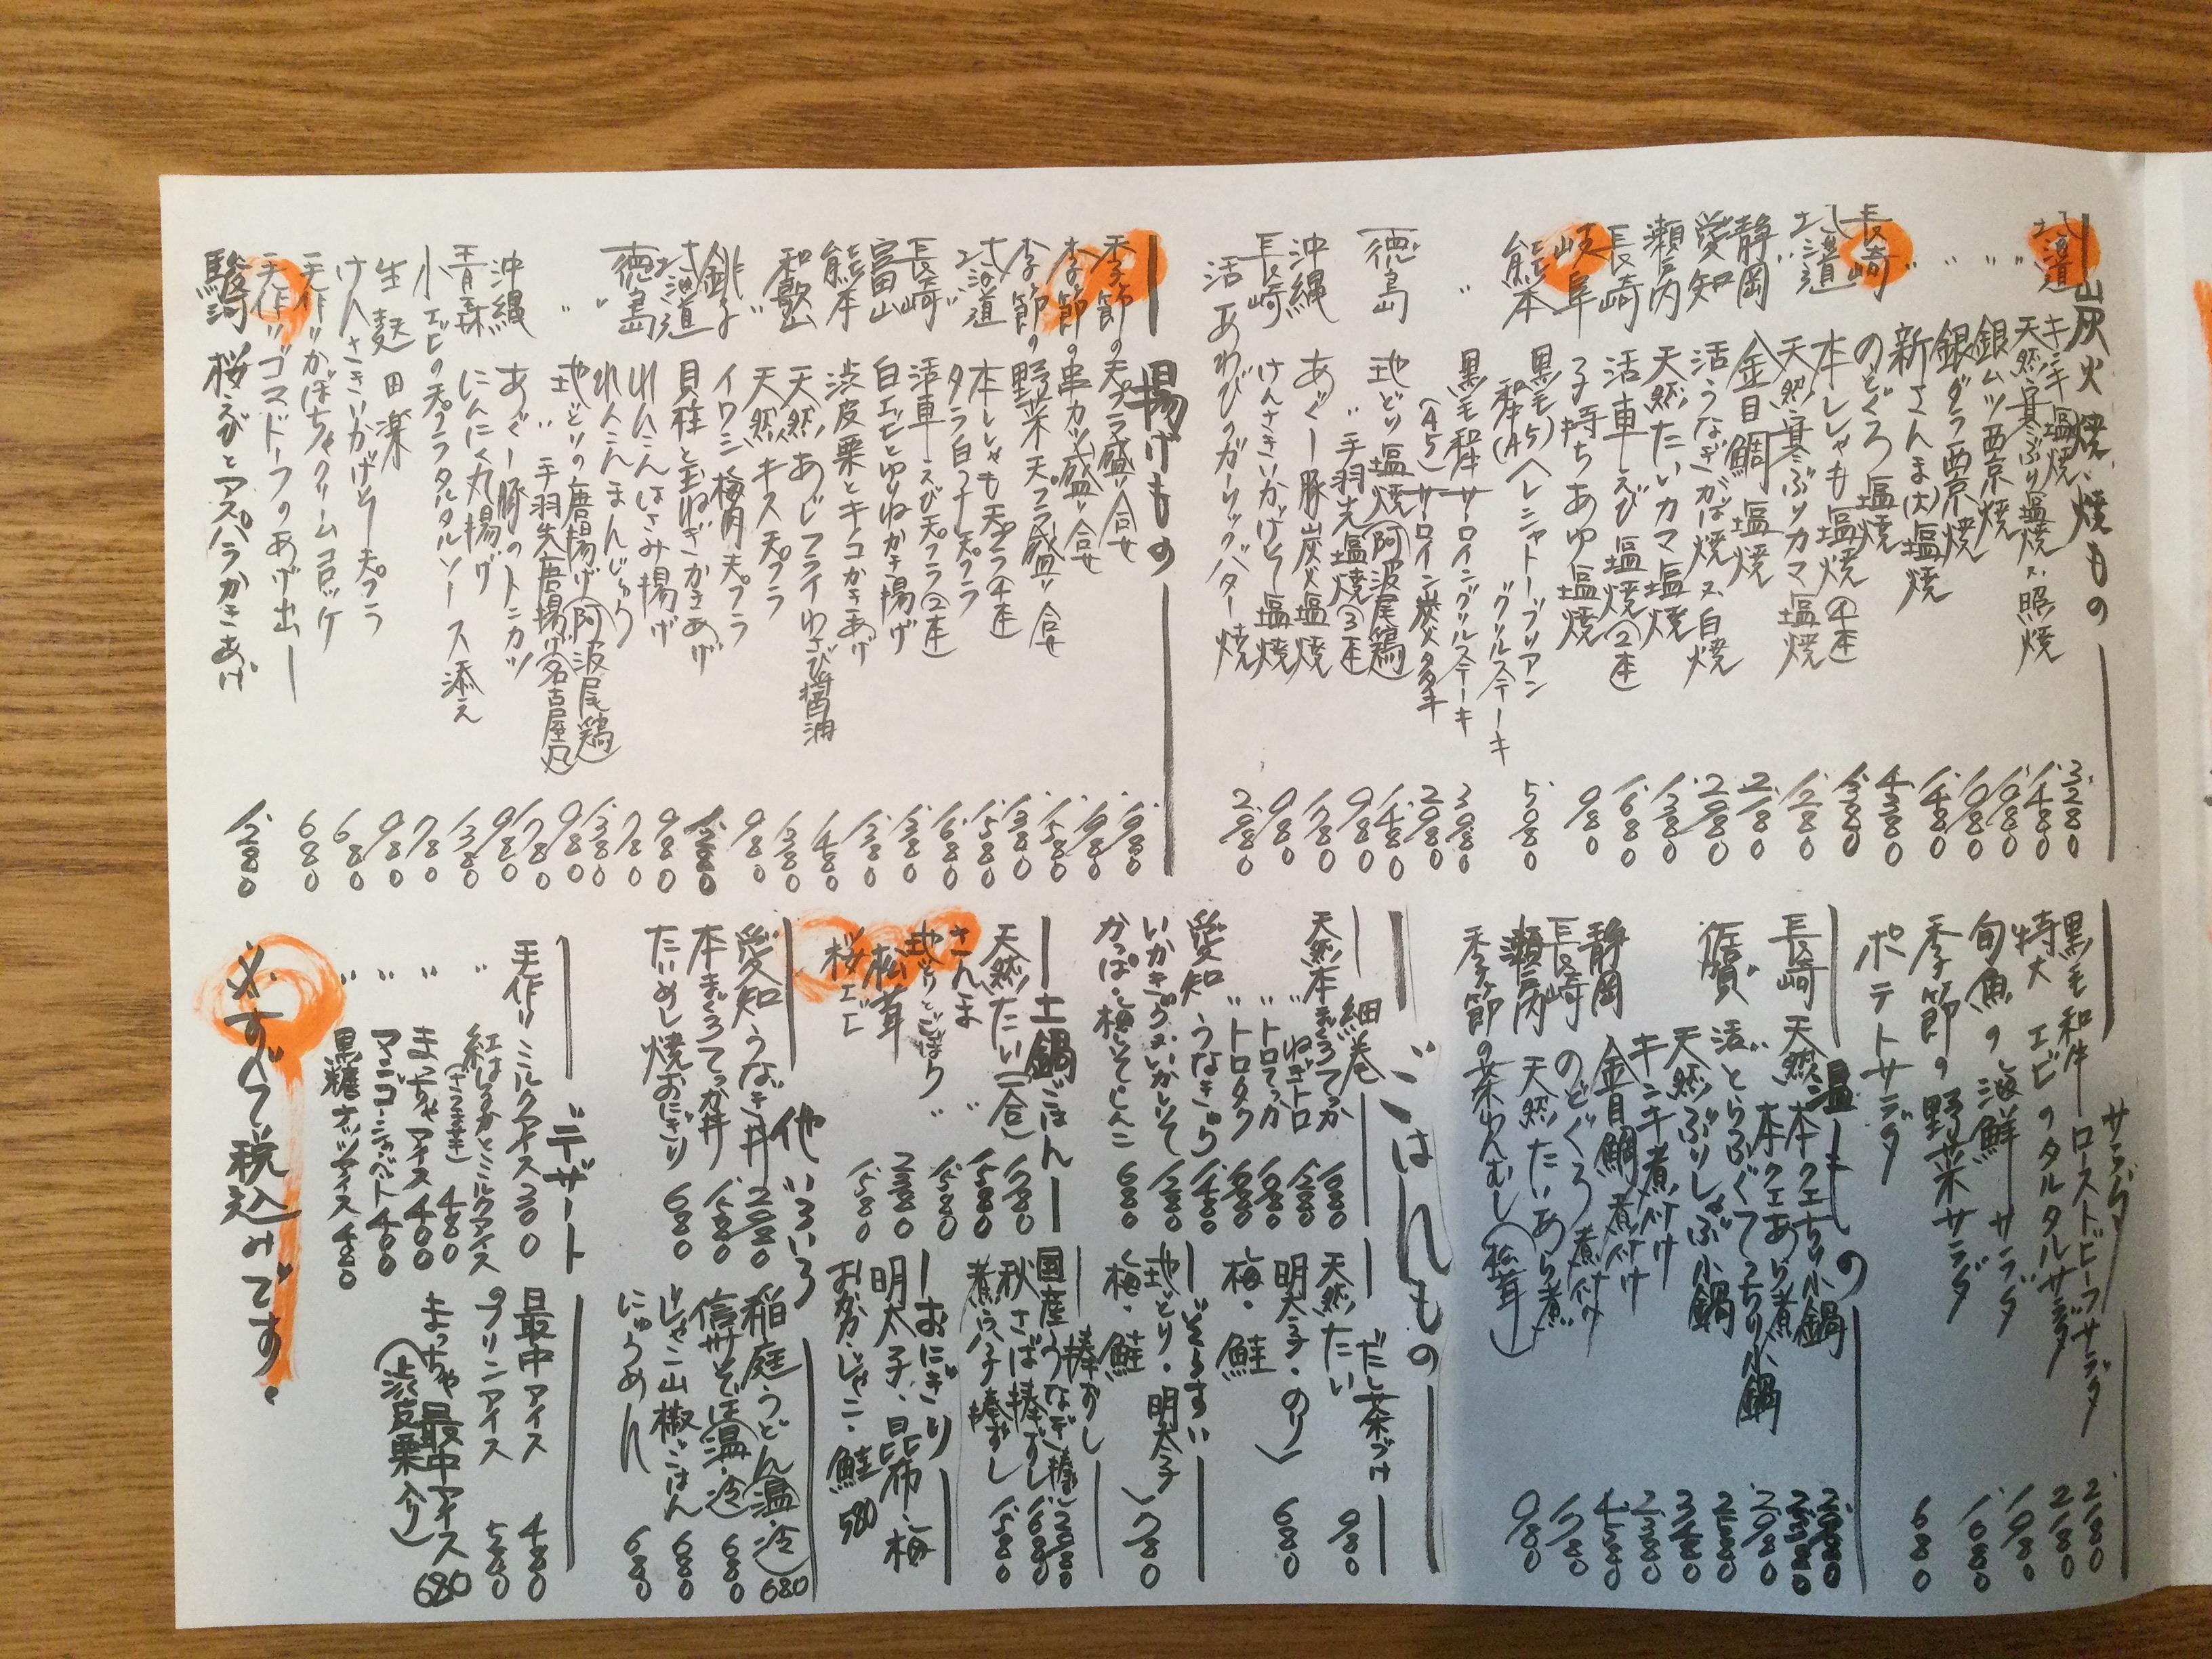 炭火焼、焼もの
北海道 キンキ塩焼 3.280
〃 天然寒ぶり塩焼又、照焼 1.480
〃 銀ムツ西京焼 1.680
〃 銀ダラ西京焼 1.980
〃 新さんま(大)塩焼 1.480
長崎 のどぐろ塩焼 4.380
北海道 本ししゃも塩焼(4本) 1.380
〃 天然寒ぶりカマ塩焼 1.280
静岡 金目鯛塩焼 2.180
愛知 活うなぎかば焼又、白焼 2.980
瀬戸内 天然たいカマ塩焼 1.380
長崎 活車えび塩焼(2本) 1.680
岐阜 子持ちあゆ塩焼 980
熊本 黒毛和牛(A5)ヘレシャトーブリアングリルステーキ 5.080
〃 黒毛和牛サーロイングリルステーキ 3.080
(A5)サーロイン炭火タタキ 2.980
徳島 地どり塩焼(阿波尾鶏) 1.480
〃 手羽先塩焼(3本) 980
沖縄 あぐー豚炭火塩焼 1.780
長崎 けんさきいかげそ塩焼 980
活あわびのガーリックバター焼 2.980
揚げもの
季節の天プラ盛り合せ 1.980
季節の串カツ盛り合せ 1.980
季節の野菜天プラ盛り合せ 1.580
北海道 本ししゃも天プラ(4本) 1.380
〃 タラ白子天プラ 1.580
長崎 活車えび天プラ(2本) 1.680
富山 白エビとゆりねかき揚げ 1.380
熊本 渋皮栗とキノコかきあげ 1.380
和歌山 天然あじフライわさび醤油 1.480
〃 天然キス天プラ 1.380
銚子 イワシ梅肉天プラ 980
北海道 貝柱と玉ねぎかきあげ 1.280
徳島 れんこんはさみ揚げ 980
れんこんまんじゅう 780
〃 地どりの唐揚げ(阿波尾鶏) 1.380
〃 手羽先唐揚げ(名古屋風) 980
沖縄 あぐー豚のトンカツ 1.780
青森 にんにく丸揚げ 980
小エビの天プラタルタルソース添え 1.380
生麩田楽 780
けんさきいかげそ天プラ 980
手作りかぼちゃクリームコロッケ 680
手作りゴマドーフのあげ出し 680
駿河 桜えびとアスパラかきあげ 1.280
サラダ
黒毛和牛ローストビーフサラダ 2.180
特大エビのタルタルサラダ 2.180
旬魚の海鮮サラダ 1.980
季節の野菜サラダ 1.080
ポテトサラダ 680
温もの
長崎 天然本クエちり小鍋
〃 本クエあら煮
佐賀 活とらふぐてっちり小鍋
〃 天然ぶりしゃぶ小鍋
キンキ煮付け
静岡 金目鯛煮付け
長崎 のどぐろ煮付け
瀬戸内 天然たいあら煮 1.780
季節の茶わんむし(松茸) 980
ごはんもの
細巻
天然本まぐろてっか 1.680
〃 ねぎトロ 1.280
〃 トロてっか 1.680
〃 トロタク 1.680
愛知 うなきゅう 1.480
いかきゅう又、いかしそ 1.280
かっぱ・梅しそしんこ 680
だし茶づけ
天然たい 980
明太子・のり
梅・鮭 680
ぞうすい
地とり・明太子
梅・鮭 780
土鍋ごはん
天然たい(一合) 1.780
さんま 〃 1.580
地とりとごぼう 〃 1.580
松茸 2.380
桜エビ 1.580
棒ずし
国産うなぎ棒ずし 2.280
秋さば棒ずし 1.680
煮穴子棒ずし 1.580
おにぎり
明太子、昆布、梅
おかか・じゃこ・鮭 580
他いろいろ
愛知 うなぎ丼 2.980
本まぐろてっか丼 1.580
たいめし焼おにぎり 680
稲庭うどん(温・冷) 680
信州そば(温・冷) 680
じゃこ山椒ごはん 680
にゅうめん 680
デザート
手作りミルクアイス 300
〃 紅はるかとミルクアイス(さつまいも) 480
〃 まっちゃアイス 400
〃 マンゴーシャーベット 400
〃 黒糖ナッツアイス 480
最中アイス 480
プリンアイス 580
まっちゃ最中アイス(渋皮栗入り) 680
※すべて税込みです。